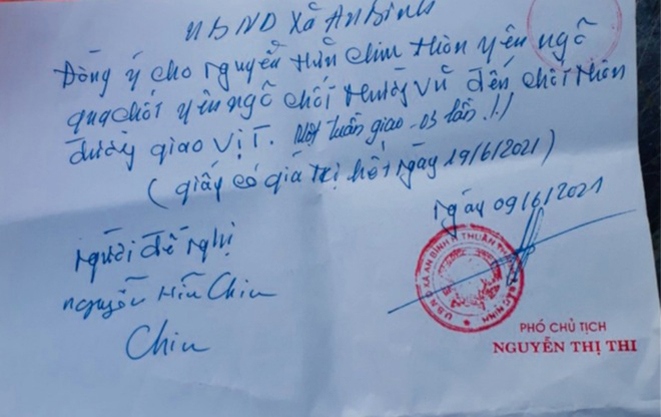 UBND Xã An Bình
Đồng ý cho Nguyễn Hữu Chiu thôn Yên Ngô
qua chốt Yên Ngô chốt Thường Vũ đến chốt thôn
đường giao vịt. Một tuần giao 03 lần./.
(giấy có giá trị hết ngày 19/6/2021)
Ngày 09/6/2021
Người đề nghị
Nguyễn Hữu Chiu
Chiu
U.B.N.D XÃ AN BÌNH H. THUẬN THÀNH BẮC NINH
PHÓ CHỦ TỊCH
NGUYỄN THỊ THI